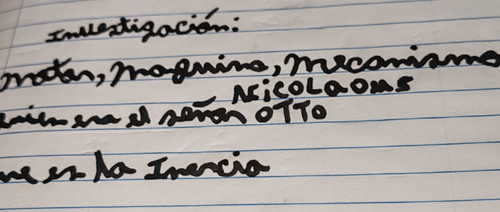 Investigación:
motor, maquina, mecanismo
quien era el señor NICOLAOUS OTTO
que es la Inercia